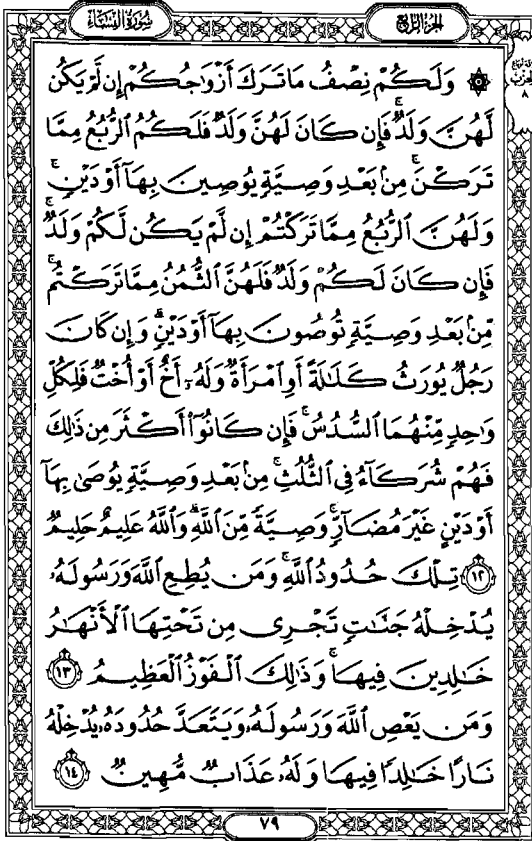 سُورَةُ النِّسَاءِ
الجُزْءُ الرَّابِعُ
الحِزْبِ
٨
۞ وَلَكُمْ نِصْفُ مَا تَرَكَ أَزْوَاجُكُمْ إِن لَّمْ يَكُن
لَّهُنَّ وَلَدٌ ۚ فَإِن كَانَ لَهُنَّ وَلَدٌ فَلَكُمُ الرُّبُعُ مِمَّا
تَرَكْنَ ۚ مِنۢ بَعْدِ وَصِيَّةٍ يُوصِينَ بِهَآ أَوْ دَيْنٍ ۚ
وَلَهُنَّ ٱلرُّبُعُ مِمَّا تَرَكْتُمْ إِن لَّمْ يَكُن لَّكُمْ وَلَدٌ ۚ
فَإِن كَانَ لَكُمْ وَلَدٌ فَلَهُنَّ ٱلثُّمُنُ مِمَّا تَرَكْتُم ۚ
مِّنۢ بَعْدِ وَصِيَّةٍ تُوصُونَ بِهَآ أَوْ دَيْنٍ ۗ وَإِن كَانَ
رَجُلٌ يُورَثُ كَلَـٰلَةً أَوِ ٱمْرَأَةٌ وَلَهُۥٓ أَخٌ أَوْ أُخْتٌ فَلِكُلِّ
وَٰحِدٍ مِّنْهُمَا ٱلسُّدُسُ ۚ فَإِن كَانُوٓا۟ أَكْثَرَ مِن ذَٰلِكَ
فَهُمْ شُرَكَآءُ فِى ٱلثُّلُثِ ۚ مِنۢ بَعْدِ وَصِيَّةٍ يُوصَىٰ بِهَآ
أَوْ دَيْنٍ غَيْرَ مُضَآرٍّ ۚ وَصِيَّةً مِّنَ ٱللَّهِ ۗ وَٱللَّهُ عَلِيمٌ حَلِيمٌ
١٢ تِلْكَ حُدُودُ ٱللَّهِ ۚ وَمَن يُطِعِ ٱللَّهَ وَرَسُولَهُۥ
يُدْخِلْهُ جَنَّـٰتٍ تَجْرِى مِن تَحْتِهَا ٱلْأَنْهَـٰرُ
خَـٰلِدِينَ فِيهَا ۚ وَذَٰلِكَ ٱلْفَوْزُ ٱلْعَظِيمُ ١٣
وَمَن يَعْصِ ٱللَّهَ وَرَسُولَهُۥ وَيَتَعَدَّ حُدُودَهُۥ يُدْخِلْهُ
نَارًا خَـٰلِدًا فِيهَا وَلَهُۥ عَذَابٌ مُّهِينٌ ١٤
٧٩